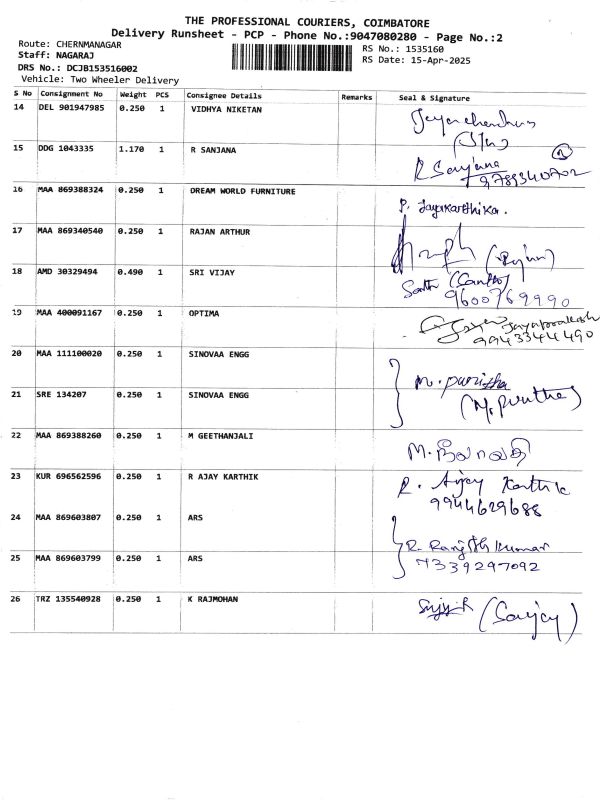 THE PROFESSIONAL COURIERS, COIMBATORE
Delivery Runsheet - PCP - Phone No.:9047080280 - Page No.:2
Route: CHERNMANAGAR
Staff: NAGARAJ
DRS No.: DCJB153516002
Vehicle: Two Wheeler Delivery
RS No.: 1535160
RS Date: 15-Apr-2025
S No Consignment No Weight PCS Consignee Details Remarks Seal & Signature
14 DEL 901947985 0.250 1 VIDHYA NIKETAN
15 DDG 1043335 1.170 1 R SANJANA R Sanjana
9789340702
16 MAA 869388324 0.250 1 DREAM WORLD FURNITURE P. Jayakarthika.
17 MAA 869340540 0.250 1 RAJAN ARTHUR
18 AMD 30329494 0.490 1 SRI VIJAY
9600769990
19 MAA 400091167 0.250 1 OPTIMA Jayaprakash
9943344490
20 MAA 111100020 0.250 1 SINOVAA ENGG
21 SRE 134207 0.250 1 SINOVAA ENGG
22 MAA 869388260 0.250 1 M GEETHANJALI
23 KUR 696562596 0.250 1 R AJAY KARTHIK R. Ajay Karthik
9944629688
24 MAA 869603807 0.250 1 ARS
25 MAA 869603799 0.250 1 ARS R. Ranjith Kumar
7339297092
26 TRZ 135540928 0.250 1 K RAJMOHAN (Sanjay)